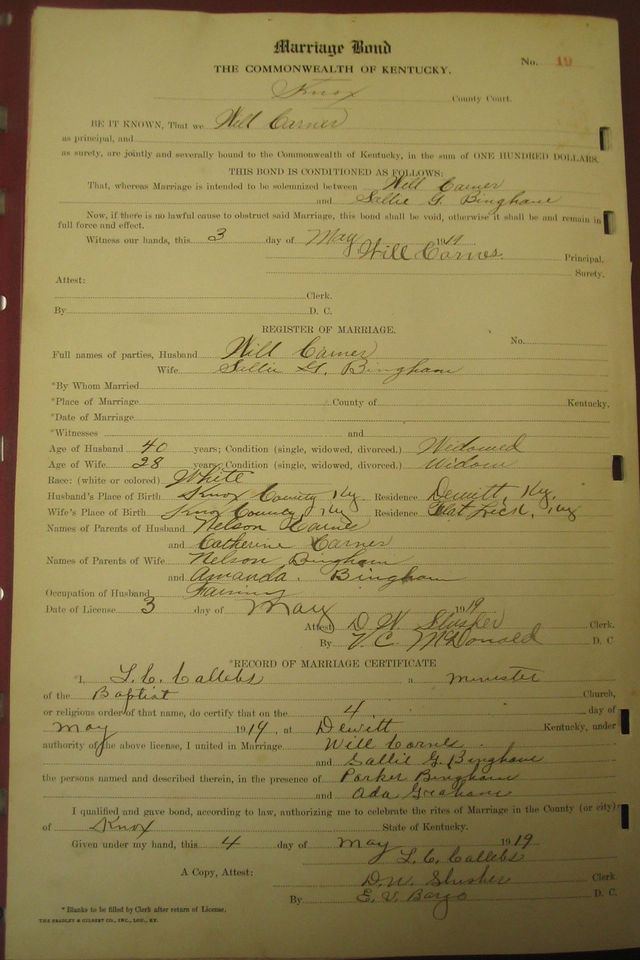 Marriage Bond
No. 19
THE COMMONWEALTH OF KENTUCKY.
Knox County Court.
BE IT KNOWN, That we Will Carnes
as principal, and
as surety, are jointly and severally bound to the Commonwealth of Kentucky, in the sum of ONE HUNDRED DOLLARS.
THIS BOND IS CONDITIONED AS FOLLOWS:
That, whereas Marriage is intended to be solemnized between Will Carnes
and Sallie G. Bingham
Now, if there is no lawful cause to obstruct said Marriage, this bond shall be void, otherwise it shall be and remain in
full force and effect.
Witness our hands, this 3 day of May 1919
Will Carnes. Principal.
Surety.
Attest:
Clerk.
By D. C.
REGISTER OF MARRIAGE.
No.
Full names of parties, Husband Will Carnes
Wife Sallie G. Bingham
*By Whom Married
*Place of Marriage County of Kentucky.
*Date of Marriage
*Witnesses and
Age of Husband 40 years; Condition (single, widowed, divorced.) Widowed
Age of Wife 28 years; Condition (single, widowed, divorced.) Widow
Race: (white or colored) White
Husband's Place of Birth Knox County Ky Residence Dewitt, Ky.
Wife's Place of Birth Knox County, Ky Residence Flat Lick, Ky
Names of Parents of Husband Nelson Carnes
and Catherine Carnes
Names of Parents of Wife Nelson Bingham
and Amanda. Bingham
Occupation of Husband Farming
Date of License 3 day of May 1919
Attest D. W. Slusher Clerk.
By V. C. McDonald D. C
*RECORD OF MARRIAGE CERTIFICATE
*I, L. C. Callebs a minister
of the Baptist Church,
or religious order of that name, do certify that on the 4 day of
May 1919, at Dewitt Kentucky, under
authority of the above license, I united in Marriage Will Carnes.
and Sallie G. Bingham
the persons named and described therein, in the presence of Parker Bingham
and Ada Graham
I qualified and gave bond, according to law, authorizing me to celebrate the rites of Marriage in the County (or city)
of Knox State of Kentucky.
Given under my hand, this 4 day of May 1919
L. C. Callebs
A Copy, Attest: D. W. Slusher Clerk
By E. V. Bargo D. C.
* Blanks to be filled by Clerk after return of License.
THE BRADLEY & GILBERT CO., INC., LOU., KY.